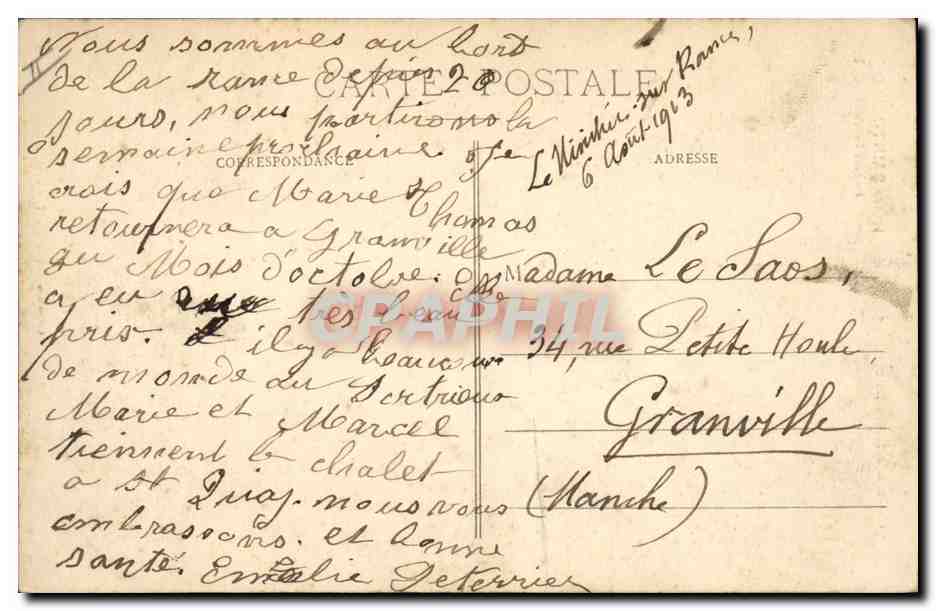 II
Nous sommes au bord
de la rance depuis 20
jours, nous partirons la
semaine prochaine. Je
crois que Marie Thomas
retournera a Granville
au Mois d'octobre. on
a eu tres beau
pris. il y a beaucoup
de monde au Portrieux
Marie et Marcel
tiennent le chalet
a St Quay. nous vous
embrassons. et bonne
santé. Emelie Deterrier
CARTE POSTALE
CORRESPONDANCE
ADRESSE
Le Minihic sur Rance,
6 Août 1913
Madame Le Saos,
34, rue Petite Houle,
Granville
(Manche)
CPAPHIL